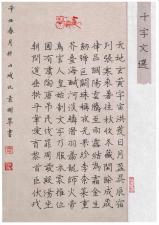 千字文選
天地玄黃宇宙洪荒日月盈昃辰宿
列張寒來暑往秋收冬藏閏餘成歲
律呂調陽雲騰致雨露結為霜金生
巨闕珠稱夜光果珍李柰菜重
芥薑海鹹河淡鱗潛羽翔龍師火帝
鳥官人皇始制文字乃服衣裳推位
讓國有虞陶唐弔民伐罪周發殷湯
坐朝問道垂拱平章愛育黎首臣伏戎
辛丑春月於山城
書